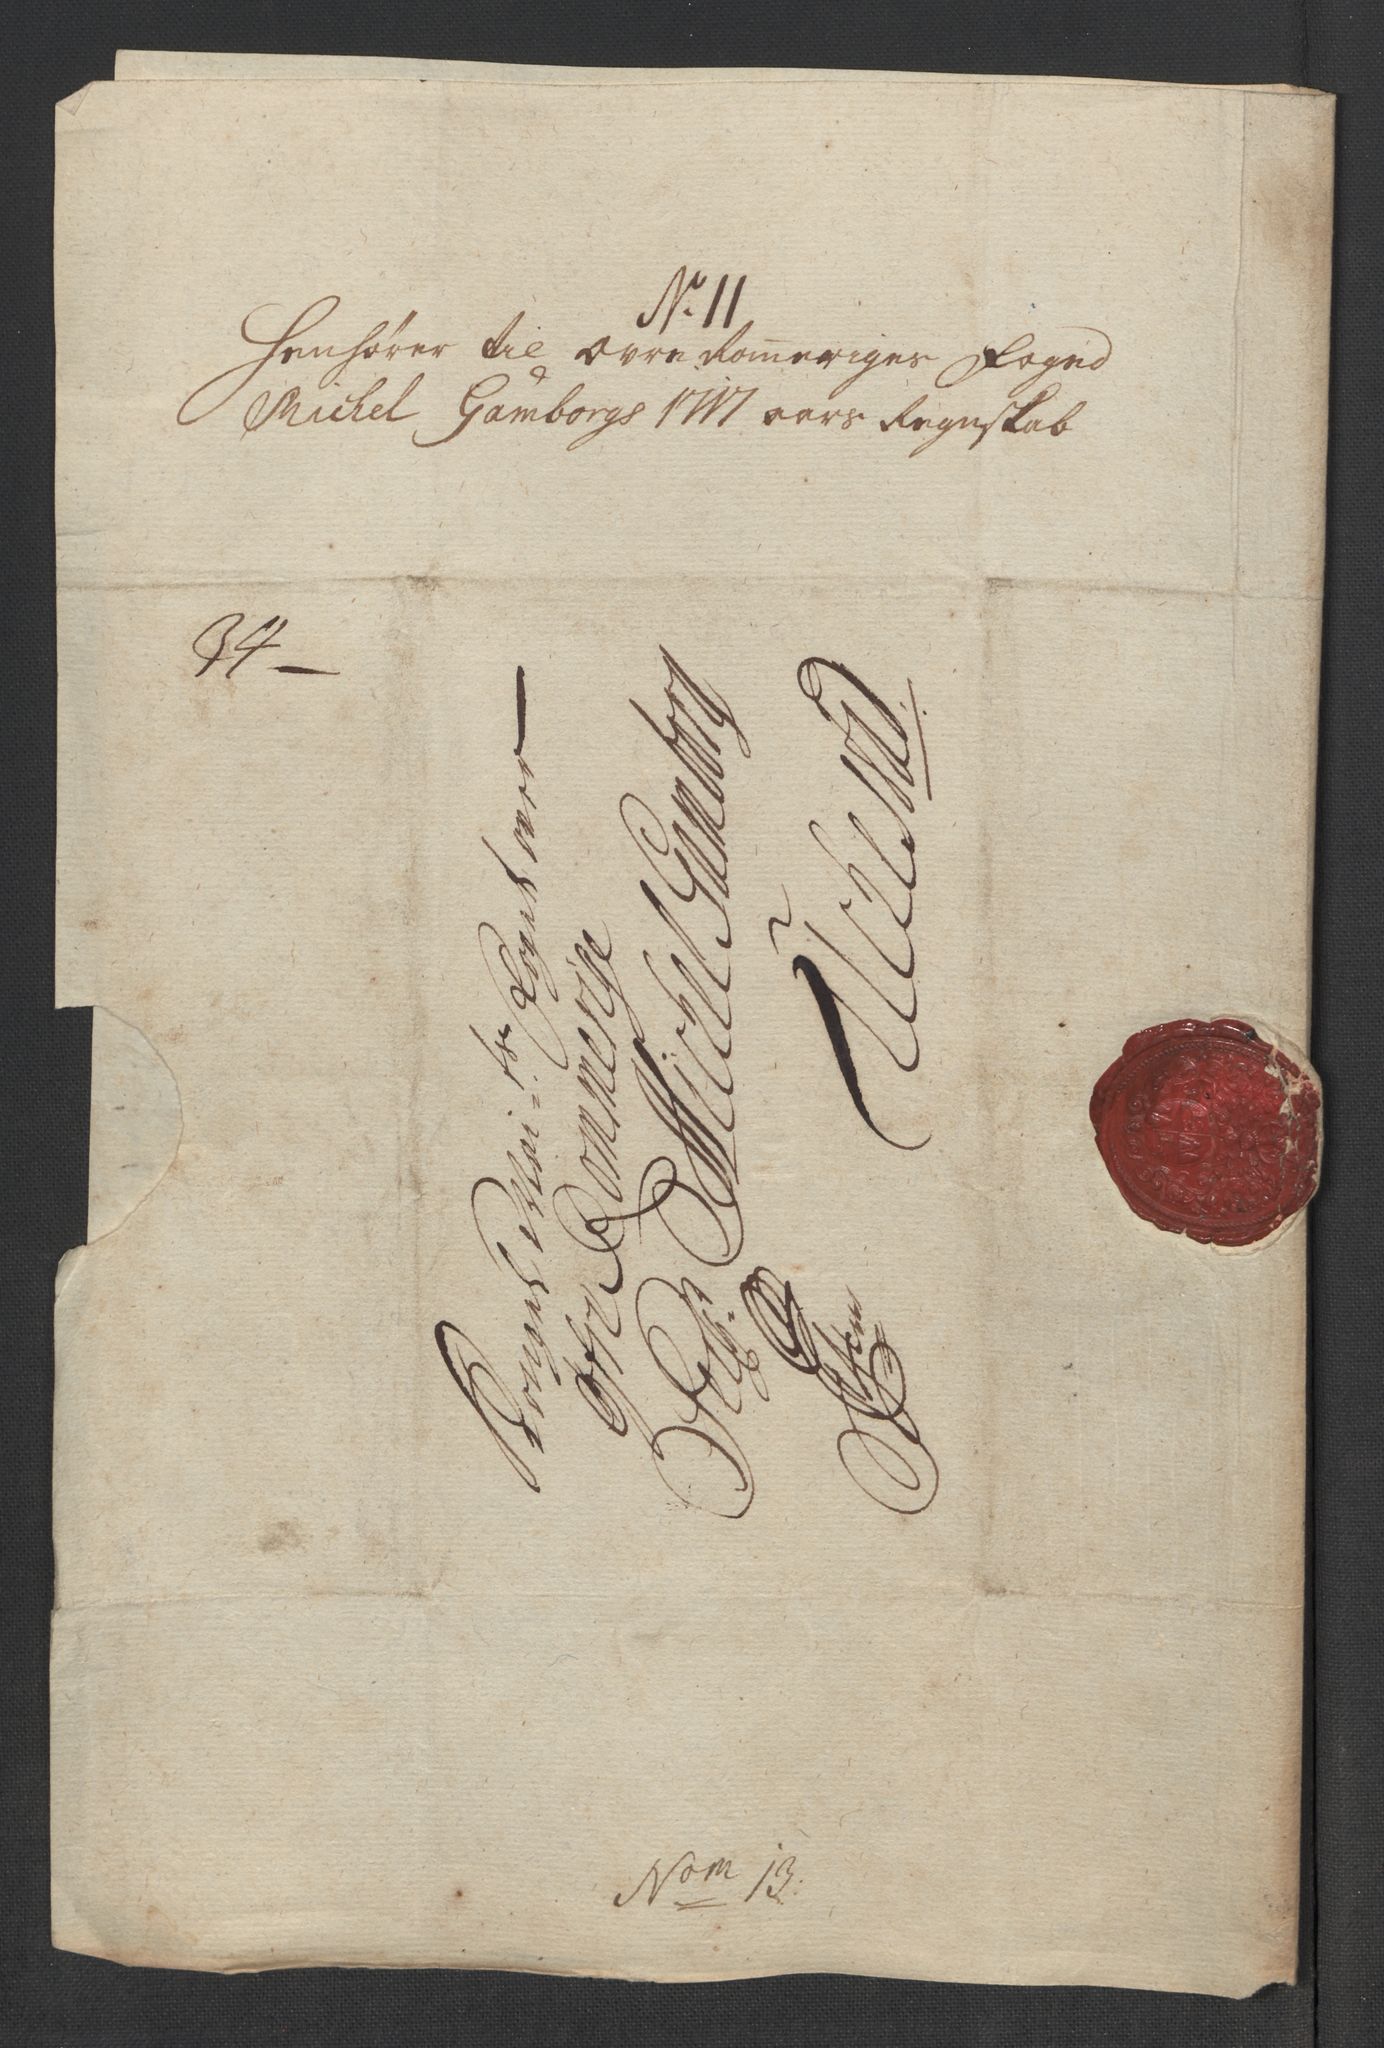 No 11
Henhörer til øvre Romeriges Foged
Michel Gamborgs 1717 aars Regnskab
34
Kongel Mai=ts Foget over
Øfre Rommerige
Sr Michel Gamborg
Nom 13.